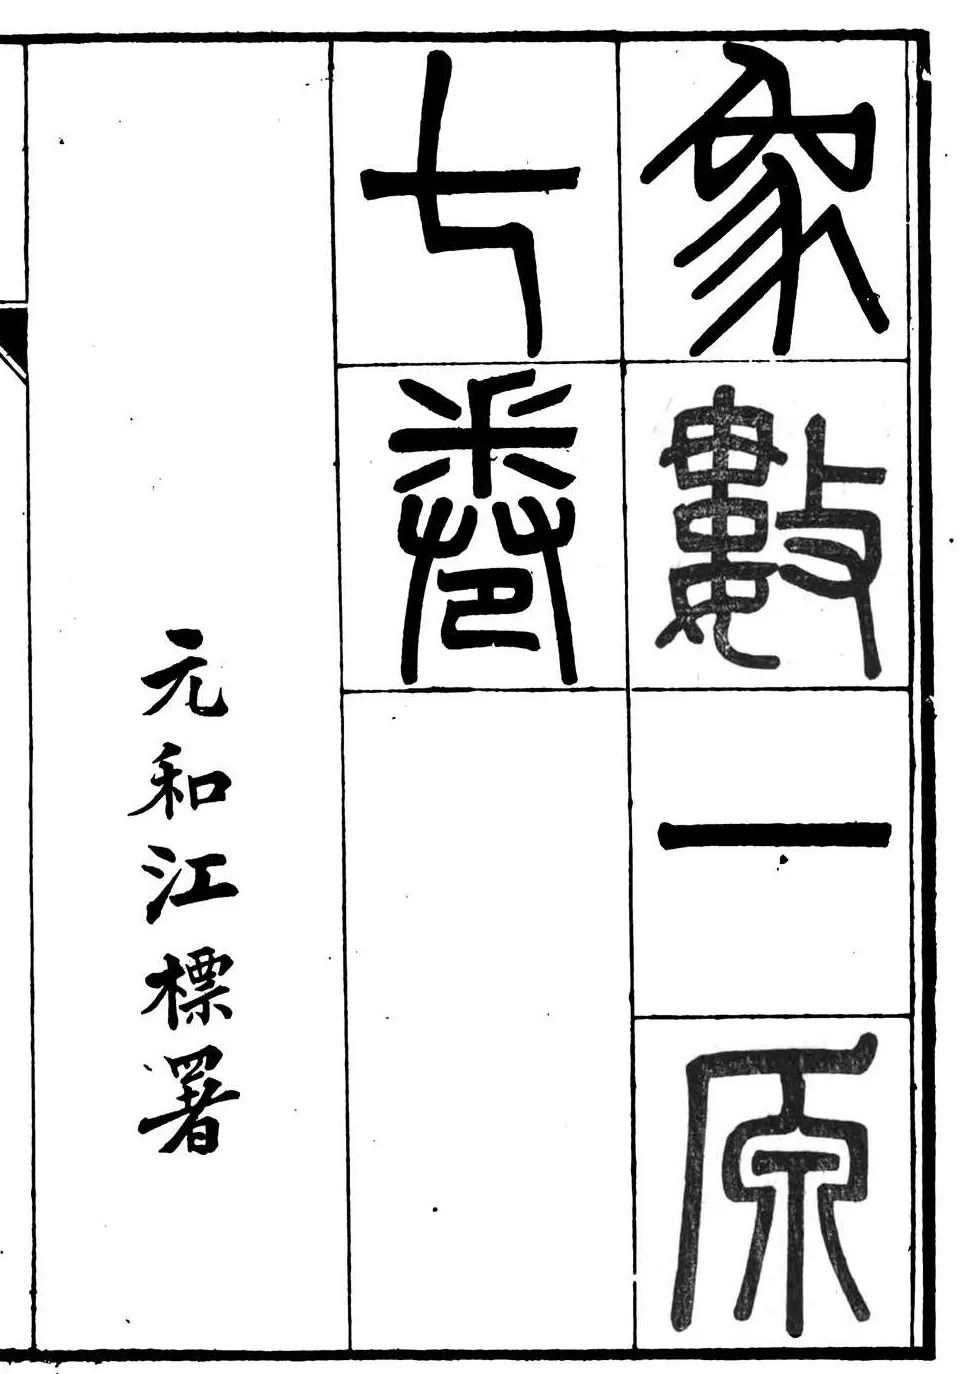 象數一原
七卷
元和江標署